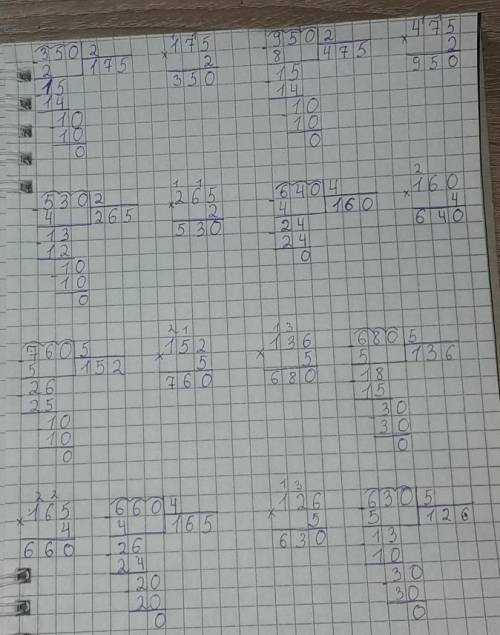 350 2
2 175
15
14
10
10
0
175
× 2
350
950 2
8 475
15
14
10
10
0
475
× 2
950
530 2
4 265
13
12
10
10
0
1 1
265
× 2
530
640 4
4 160
24
24
0
2
160
× 4
640
760 5
5 152
26
25
10
10
0
2 1
152
× 5
760
1 3
136
× 5
680
680 5
5 136
18
15
30
30
0
2 2
165
× 4
660
660 4
4 165
26
24
20
20
0
1 3
126
× 5
630
630 5
5 126
13
10
30
30
0